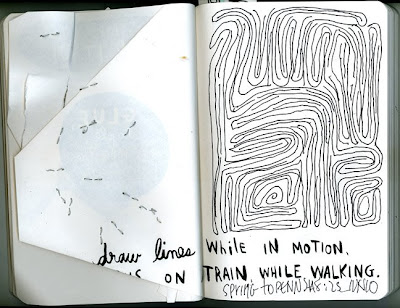 draw lines WHILE IN MOTION.
ON TRAIN, WHILE WALKING.
SPRING TO PENN